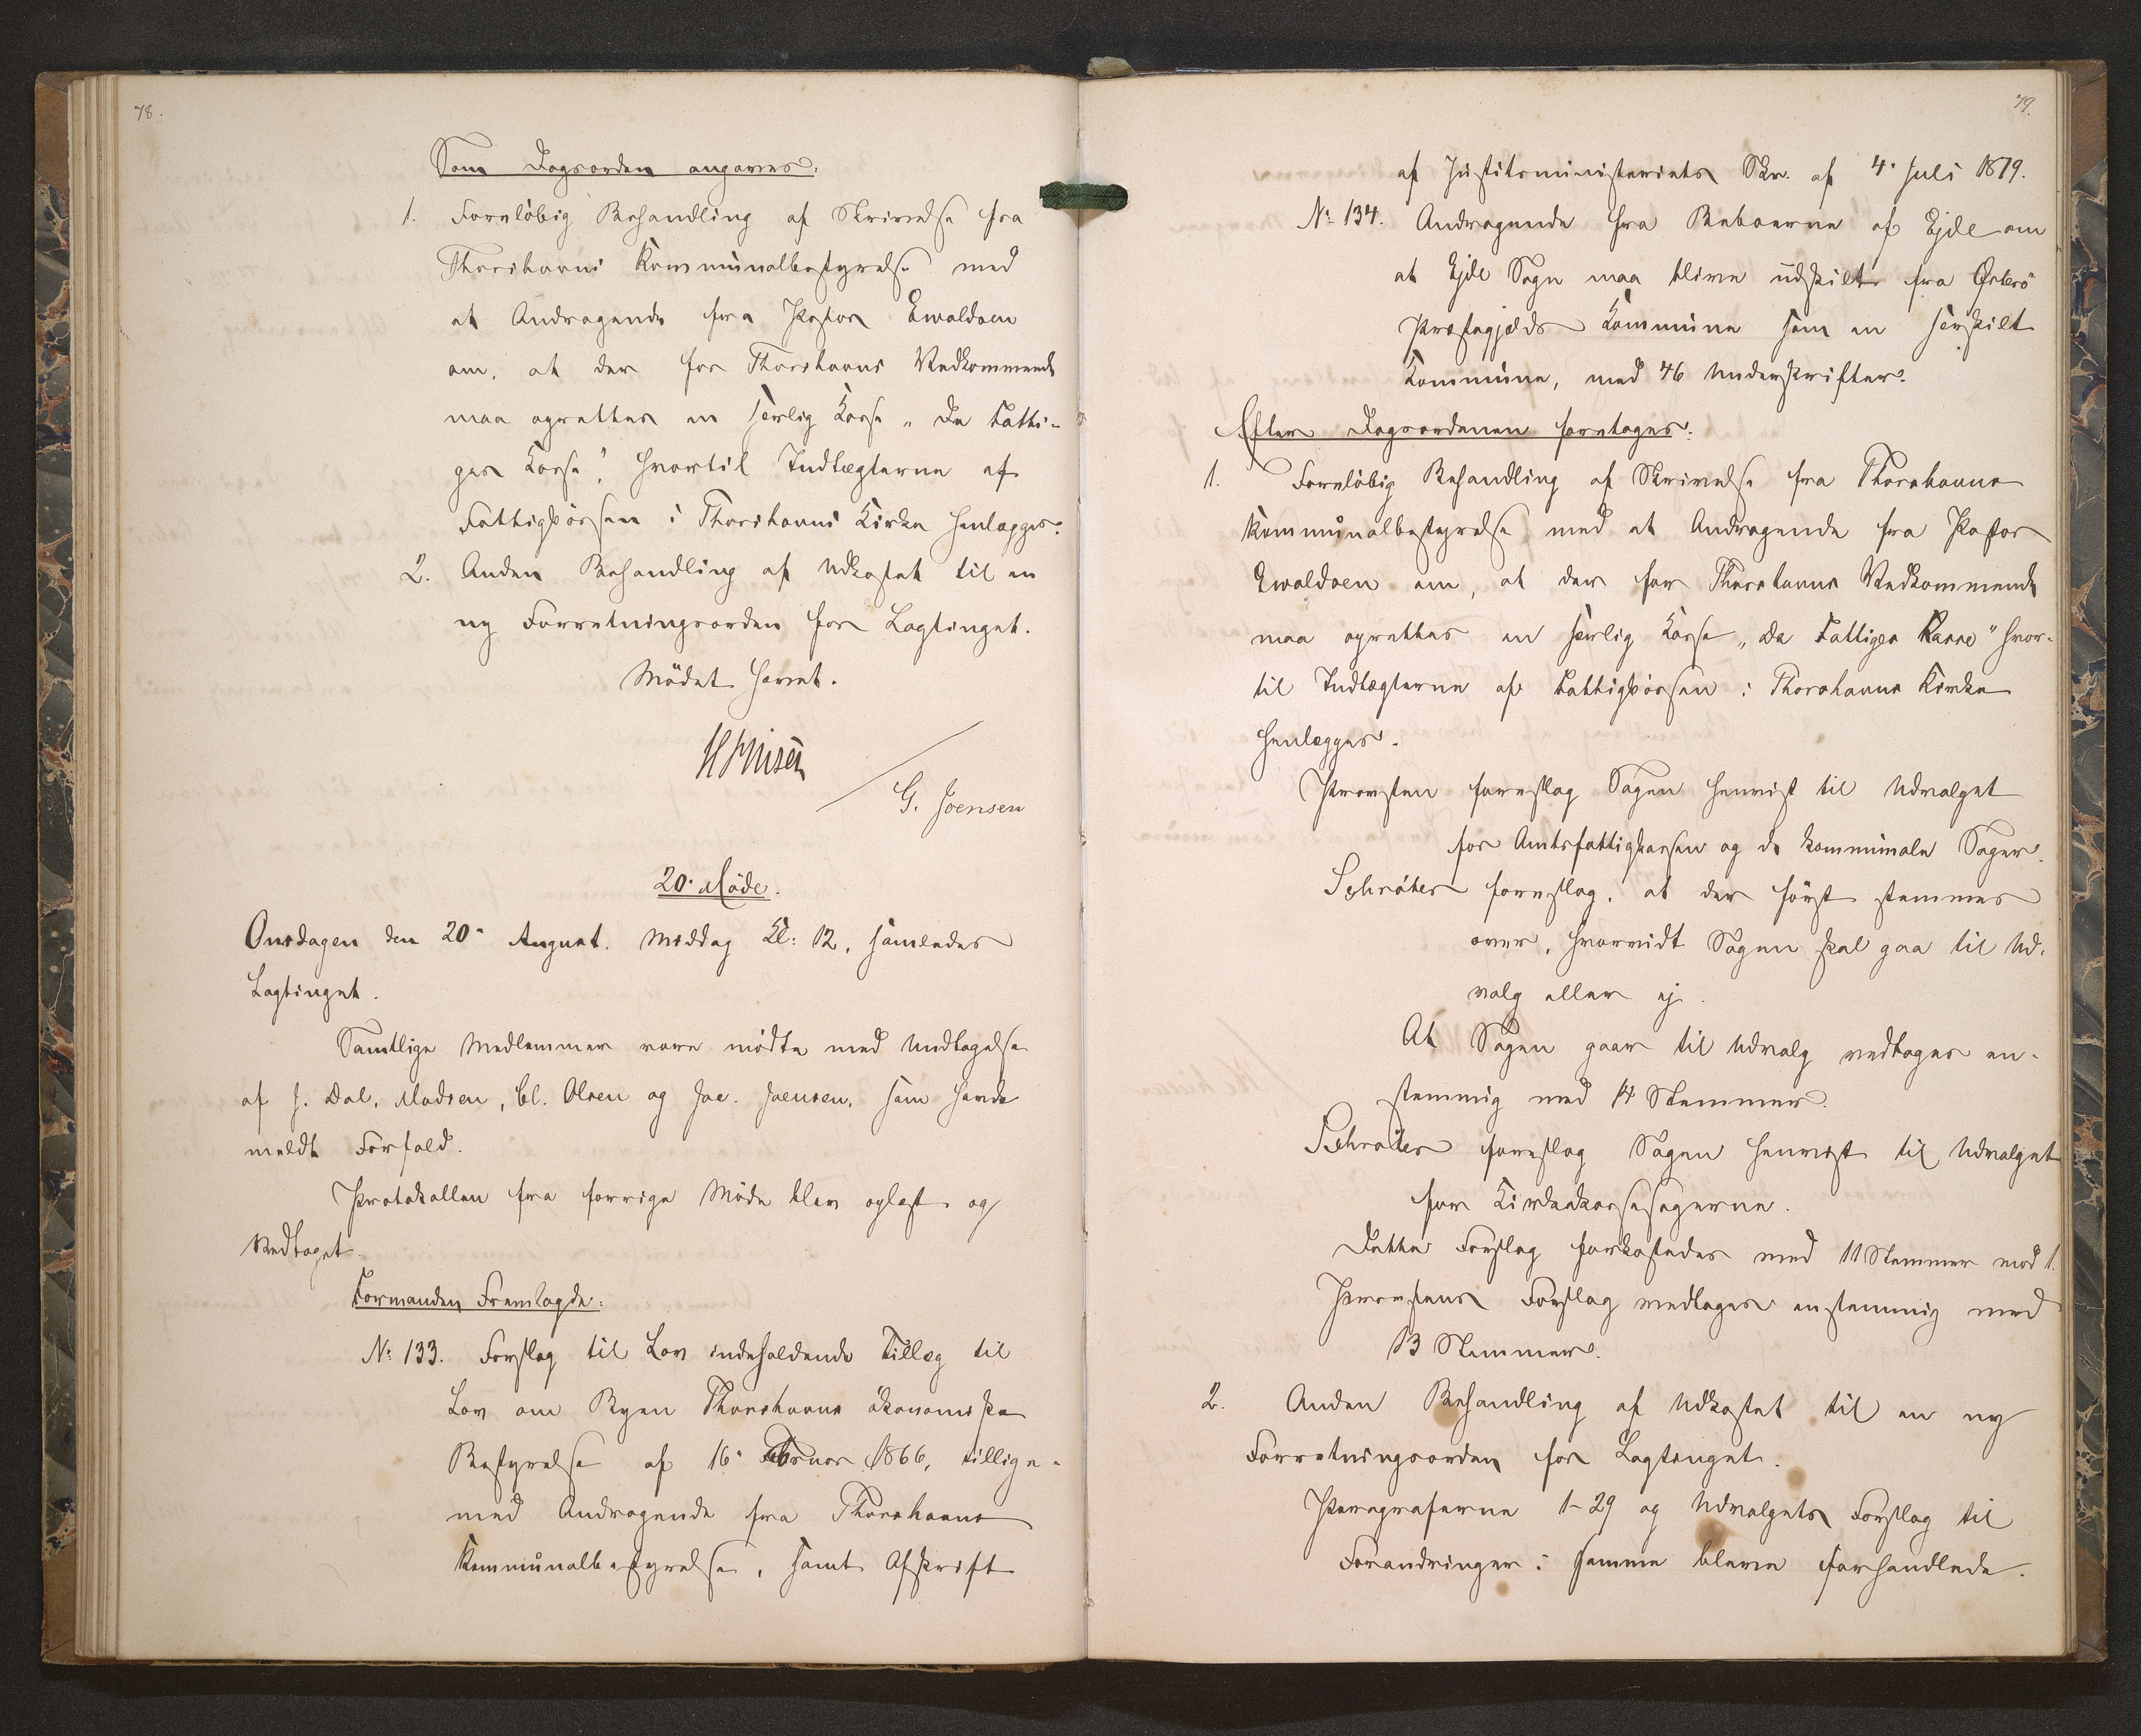 78.
Som Dagsorden angaves:
1. Foreløbig Behandling af Skrivelse fra
Thorshavns Kommunalbestyrelse med
et Andragende fra Pastor Evaldsen
om, at der for Thorshavns Vedkommende
maa oprettes en særlig Kasse „De Fatti-
ges Kasse", hvortil Indtægterne af
Fattigbøssen i Thorshavns Kirke henlægges.
2. Anden Behandling af Udkastet til en
ny Forretningsorden for Lagtinget.
Mødet hævet.
G. Joensen
20. Møde.
Onsdagen den 20. August, Middag Kl: 12, samledes
Lagtinget.
Samtlige Medlemmer vare mødte med Undtagelse
af J. Dal, Madsen, Cl. Olsen og Joe. Joensen, som havde
meldt Forfald.
Protokollen fra forrige Møde blev oplæst og
Vedtaget.
Formanden Fremlagde:
No 133. Forslag til Lov indeholdende Tillæg til
Lov om Byen Thorshavns økonomiske
Bestyrelse af 16. Februar 1866, tillige-
med Andragende fra Thorshavns
Kommunalbestyrelse, samt Afskrift
79.
af Justitsministeriets Skr. af 4. Juli 1879.
No 134. Andragende fra Beboerne af Ejde om
at Ejde Sogn maa blive udskilt fra Østerø
Præstegjelds Kommune som en særskilt
Kommune, med 46 Underskrifter.
Efter Dagsordenen foretoges:
1. Foreløbig Behandling af Skrivelse fra Thorshavns
Kommunalbestyrelse med et Andragende fra Pastor
Evaldsen om, at der for Thorshavns Vedkommende
maa oprettes en særlig Kasse „De Fattiges Kasse" hvor-
til Indtægterne af Fattigbøssen i Thorshavns Kirke
henlægges.
Provsten foreslog Sagen henvist til Udvalget
for Amtsfattigkassen og de kommunale Sager.
Schrøter foreslog, at der først stemmes
over, hvorvidt Sagen skal gaa til Ud-
valg eller ej.
At Sagen gaar til Udvalg vedtoges en-
stemmig med 14 Stemmer.
Schrøter foreslog Sagen henvist til Udvalget
for Kirkekassesagerne.
Dette Forslag forkastedes med 11 Stemmer mod 1.
Provstens Forslag vedtoges enstemmig med
13 Stemmer.
2. Anden Behandling af Udkastet til en ny
Forretningsorden for Lagtinget.
Paragraferne 1-29 og Udvalgets Forslag til
Forandringer i samme bleve forhandlede.